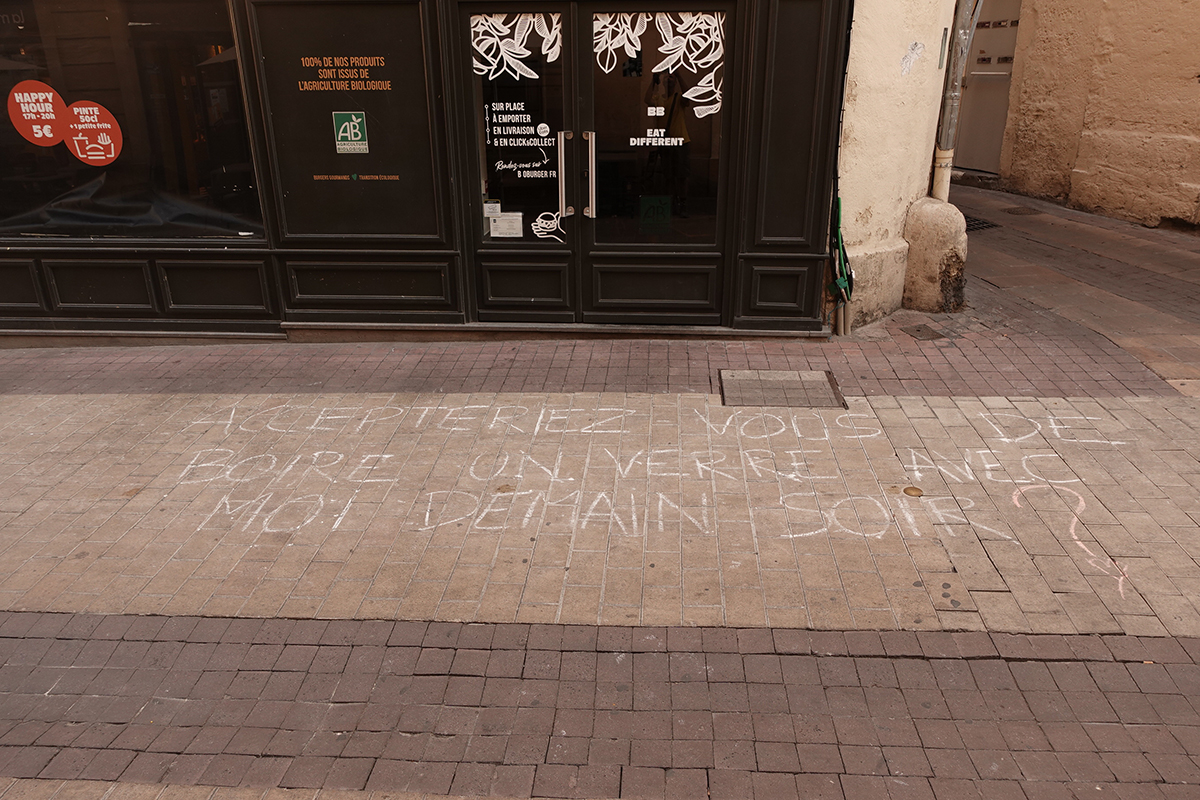 HAPPY
HOUR
17h • 20h
5€
PINTE
50cl
+ 1 petite frite
100% DE NOS PRODUITS
SONT ISSUS DE
L'AGRICULTURE BIOLOGIQUE
AB
AGRICULTURE
BIOLOGIQUE
BURGERS GOURMANDS TRANSITION ÉCOLOGIQUE
SUR PLACE
À EMPORTER
EN LIVRAISON
& EN CLICK&COLLECT
Rendez-vous sur
BOBURGER.FR
BB
EAT
DIFFERENT
ACCEPTERIEZ-VOUS DE
BOIRE UN VERRE AVEC
MOI DEMAIN SOIR ?